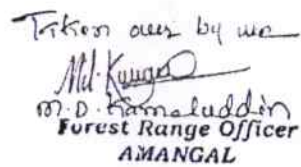 Taken over by me
M.D. Kamaluddin
Forest Range Officer
AMANGAL